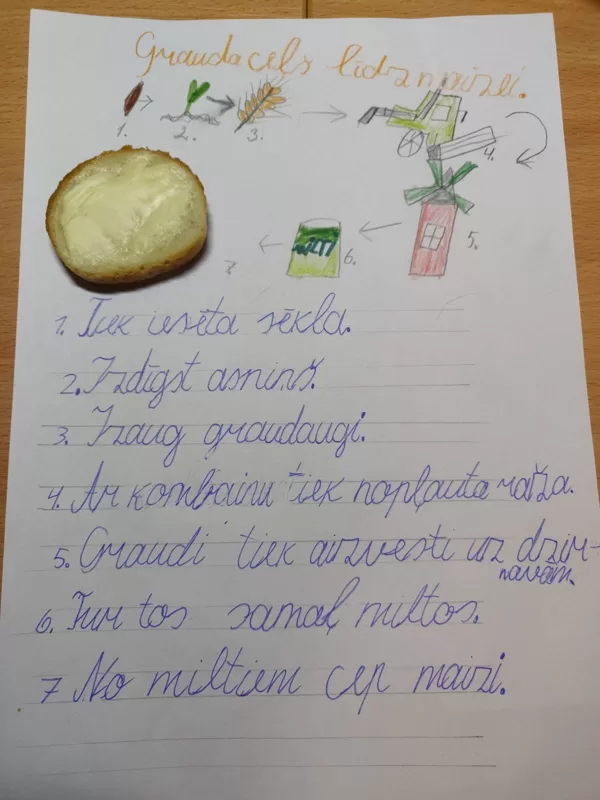 Grauda ceļš līdz maizei.
1. 2. 3. 4.
5.
MILTI 6.
7.
1. Tiek iesēta sēkla.
2. Izdīgst asniņš.
3. Izaug graudaugi.
4. Ar kombainu tiek nopļauta raža.
5. Graudi tiek aizvesti uz dzir-
navām.
6. Tur tos samaļ miltos.
7 No miltiem cep maizi.